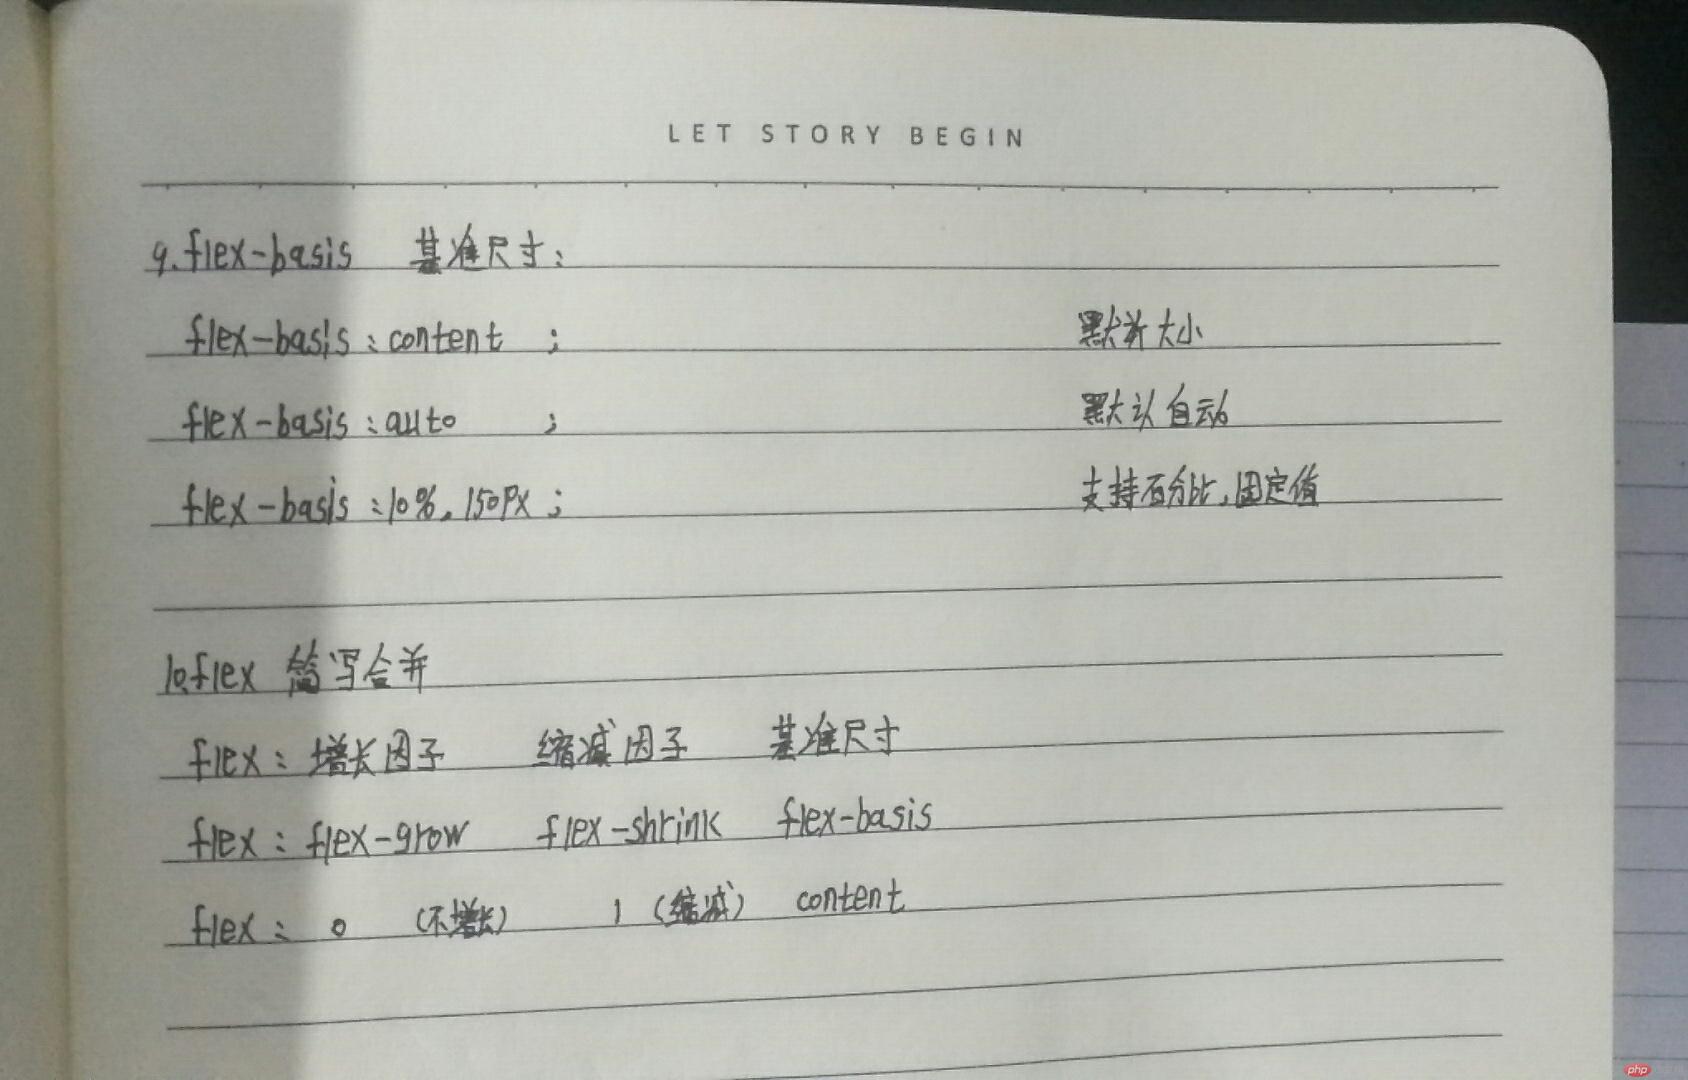 LET STORY BEGIN
9.flex-basis 基准尺寸:
flex-basis:content ; 默认大小
flex-basis:auto ; 默认自动
flex-basis:10%,150px; 支持百分比,固定值
10.flex 简写合并
flex: 增长因子 缩减因子 基准尺寸
flex: flex-grow flex-shrink flex-basis
flex: 0 (不增长) 1 (缩减) content
php